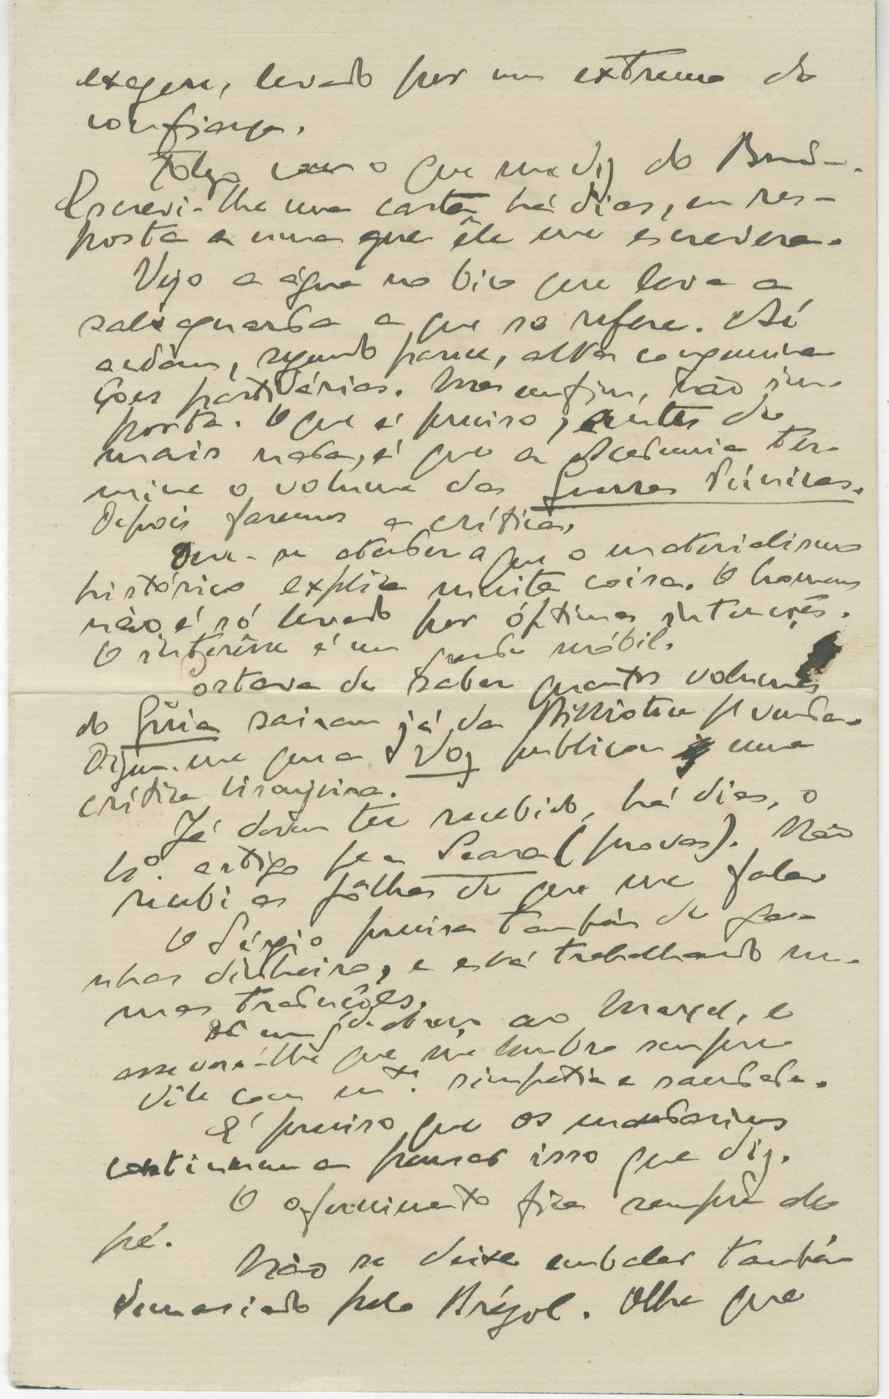 exagere, levado por um extremo de
confiança.
Folgo com o que me diz do
Escrevi-lhe uma carta há dias, em res-
posta a uma que êle me escrevera.
Vejo a água no bico que leva a
salvaguarda a que se refere. Aí
andam, segundo parece, altas congemina
ções partidárias. Mas enfim, não im-
porta. O que é preciso, antes de
mais nada, é que a Academia ter-
mine o volume das Guerras Púnicas.
Depois faremos a crítica.
que o materialismo
histórico explica muita coisa. O homem
não é só levado por óptimas intenções.
O interêsse é um grande móbil.
Gostava de saber quantos volumes
do Gíria sairam já da
Dizem-me que a Voz publicou uma
crítica lisonjeira.
Já devem ter recebido, há dias, o
m/ artigo p.a a Seara (provas). Não
recebi as fôlhas de que me fala
O Sérgio precisa também de ga-
nhar dinheiro, e está trabalhando nu-
mas traduções.
Dê um gde abraço ao Marçal, e
assevere-lhe que me lembro sempre
dêle com mta. simpatia e saudade.
É preciso que os mandarins
continuem a pensar isso que diz.
O oferecimento fica sempre de
pé.
Não se deixe embalar também
demasiado pelo Brézol. Olhe que